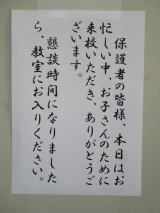 保護者の皆様、本日はお
忙しい中、お子さんのために
来校いただき、ありがとうご
ざいます。
懇談時間になりました
ら、教室にお入りください。